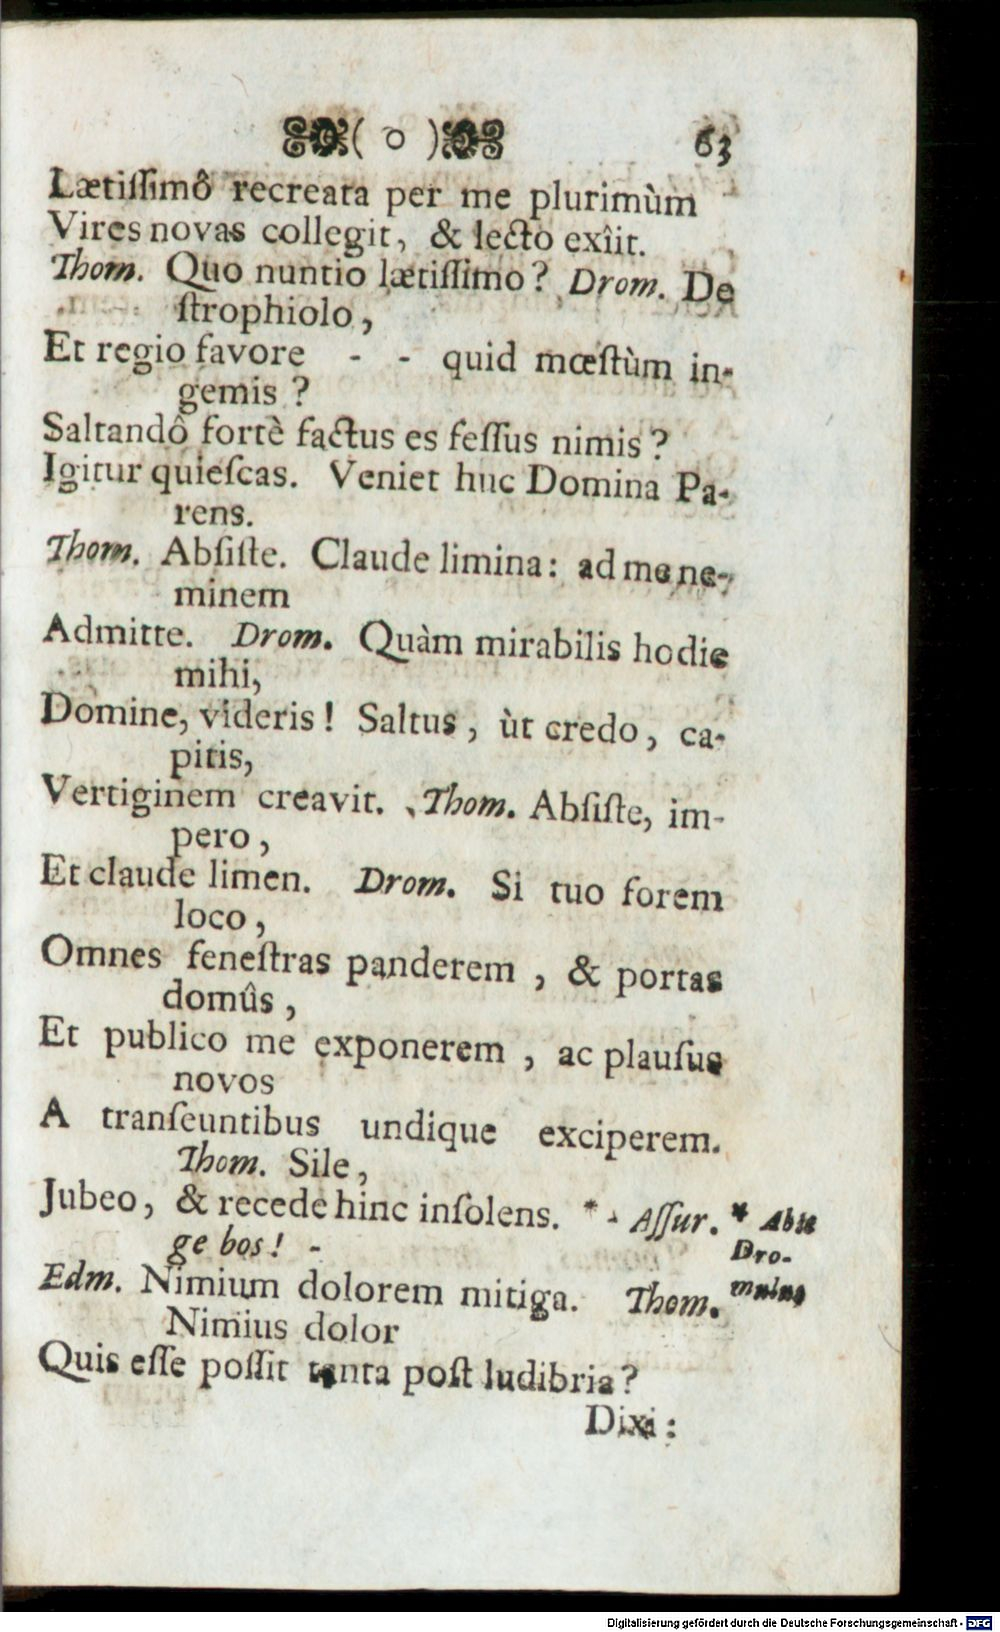 ( o ) 63
Lætiſſimô recreata per me plurimùm
Vires novas collegit, & lecto exîit.
Thom. Quo nuntio lætiſſimo? Drom. De
ſtrophiolo,
Et regio favore - - quid mœſtùm in-
gemis ?
Saltandô fortè factus es feſſus nimis ?
Igitur quieſcas. Veniet huc Domina Pa-
rens.
Thom. Abſiſte. Claude limina: ad me ne-
minem
Admitte. Drom. Quàm mirabilis hodie
mihi,
Domine, videris! Saltus, ùt credo, ca-
pitis,
Vertiginem creavit. Thom. Abſiſte, im-
pero,
Et claude limen. Drom. Si tuo forem
loco,
Omnes feneſtras panderem, & portas
domûs,
Et publico me exponerem, ac plauſus
novos
A tranſeuntibus undique exciperem.
Thom. Sile,
Jubeo, & recede hinc inſolens. * - Aſſur. * Abit
ge bos! - Dro-
Edm. Nimium dolorem mitiga. Thom. mulus
Nimius dolor
Quis eſſe poſſit tanta poſt ludibria?
Dixi:
Digitalisierung gefördert durch die Deutsche Forschungsgemeinschaft - DFG